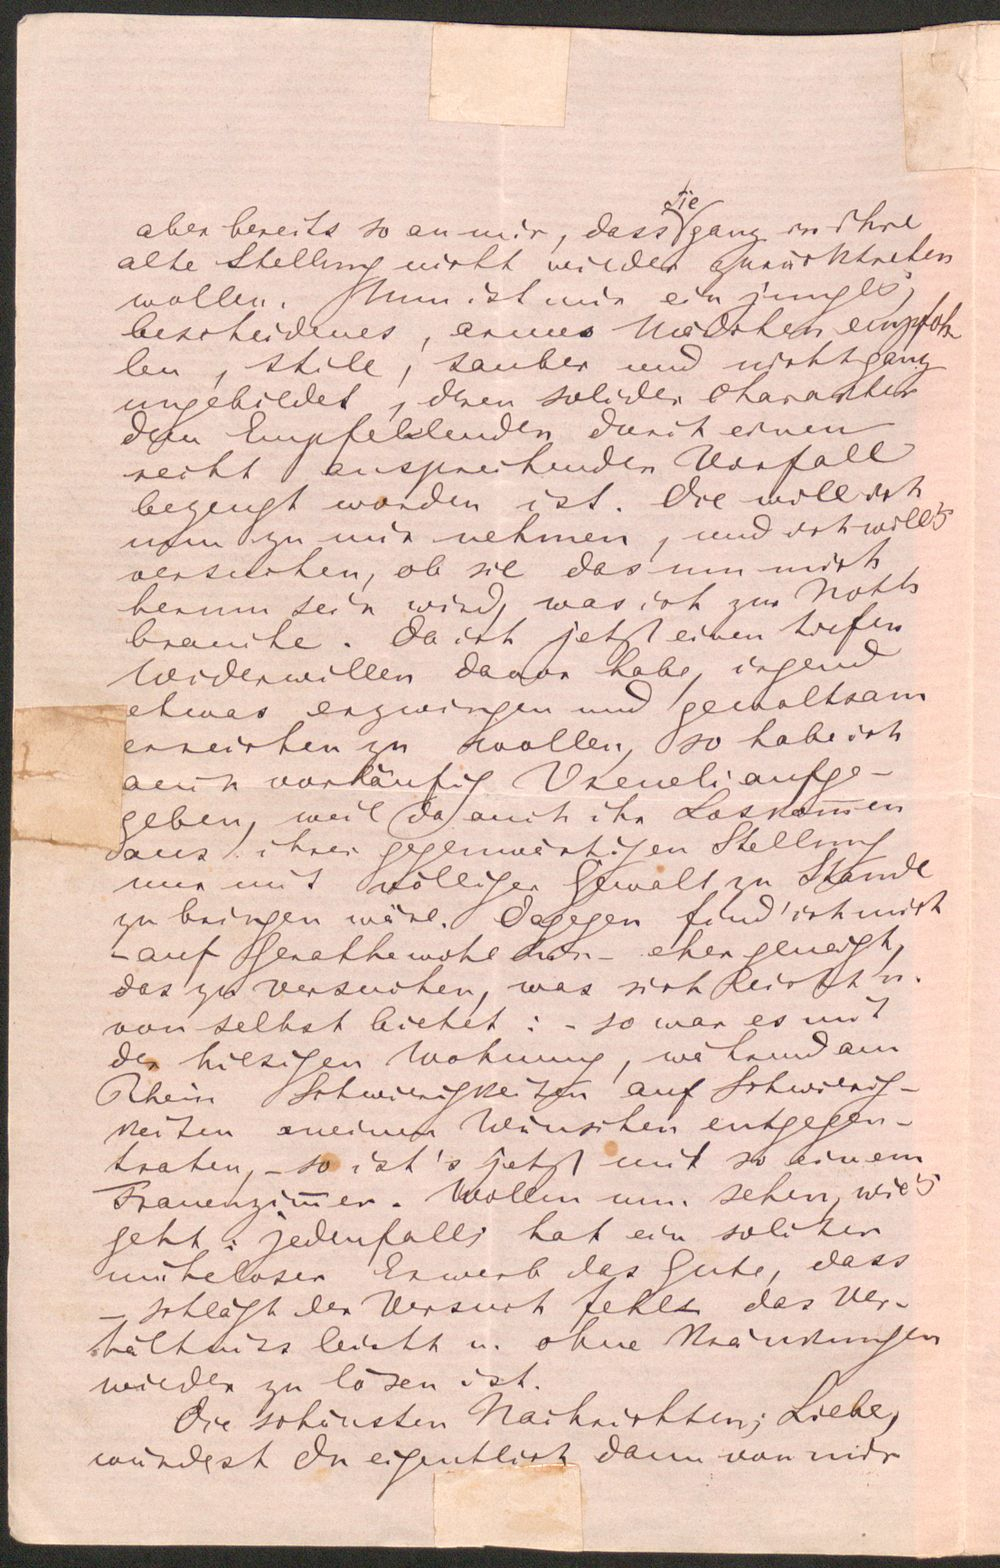 aber bereits so an mir, dass sie ganz in ihre
alte Stellung nicht wieder zurücktreten
wollen. Nun ist mir ein junges,
bescheidenes, armes Mädchen empfoh
len, stille, sauber und nicht ganz
ungebildet, deren solider Charakter
dem Empfehlenden durch einen
recht ansprechenden Vorfall
bezeugt worden ist. Die will ich
nun zu mir nehmen, und ich will's
versuchen, ob sie das um mich
herum sein wird, was ich zur Noth
brauche. Da ich jetzt einen tiefen
Widerwillen davor habe, irgend
etwas erzwingen und gewaltsam
erreichen zu wollen, so habe ich
auch vorläufig Vreneli aufge-
geben, weil da auch ihr Loskom̅en
aus ihrer gegenwärtigen Stellung
nur mit völliger Gewalt zu Stande
zu bringen wäre. Dagegen find' ich mich
- auf Gerathewohl hin - eher geneigt,
das zu versuchen, was sich leicht u.
von selbst bietet: - so war es mit
der hiesigen Wohnung, während am
Rhein Schwierigkeiten auf Schwierig-
keiten meinen Wünschen entgegen-
traten, - so ist's jetzt mit so einem
Frauenzim̅er. Wollen nun sehen, wie's
geht: jedenfalls hat ein solcher
müheloser Erwerb das Gute, dass
- schlägt der Versuch fehl - das Ver-
hältniss leicht u. ohne Kränkungen
wieder zu lösen ist.
Die schönsten Nachrichten, Liebe,
würdest Du eigentlich dann von mir